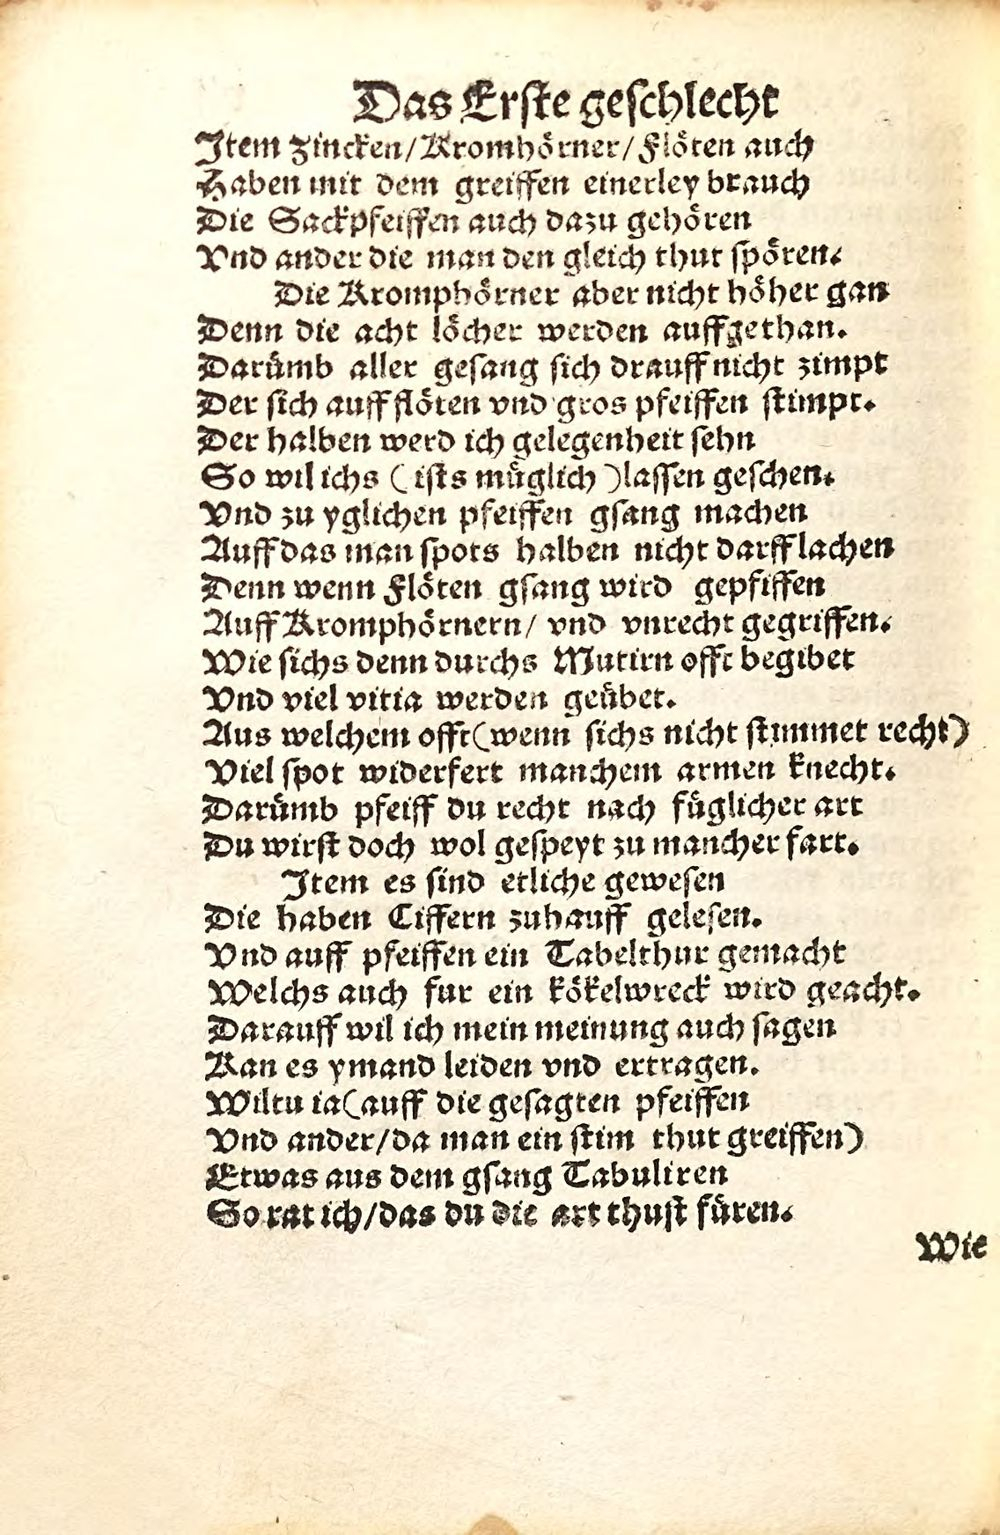 Das Erste geschlecht
Item Zincken/Kromhörner/Flöten auch
Haben mit dem greiffen einerley brauch
Die Sackpfeiffen auch dazu gehören
Vnd ander die man den gleich thut spören.
Die Kromphörner aber nicht höher gan
Denn die acht löcher werden auffgethan.
Darümb aller gesang sich drauff nicht zimpt
Der sich auff flöten vnd gros pfeiffen stimpt.
Der halben werd ich gelegenheit sehn
So wil ichs (ists müglich)lassen geschen.
Vnd zu yglichen pfeiffen gsang machen
Auff das man spots halben nicht darff lachen
Denn wenn Flöten gsang wird gepfiffen
Auff Kromphörnern/ vnd vnrecht gegriffen.
Wie sichs denn durchs Mutirn offt begibet
Vnd viel vitia werden geübet.
Aus welchem offt(wenn sichs nicht stimmet recht)
Viel spot widerfert manchem armen knecht.
Darümb pfeiff du recht nach füglicher art
Du wirst doch wol gespeyt zu mancher fart.
Item es sind etliche gewesen
Die haben Ciffern zuhauff gelesen.
Vnd auff pfeiffen ein Tabelthur gemacht
Welchs auch fur ein kökelwreck wird geacht.
Darauff wil ich mein meinung auch sagen
Kan es ymand leiden vnd ertragen.
Wiltu ia(auff die gesagten pfeiffen
Vnd ander/da man ein stim thut greiffen)
Etwas aus dem gsang Tabuliren
So rat ich/das du die art thust füren.
Wie